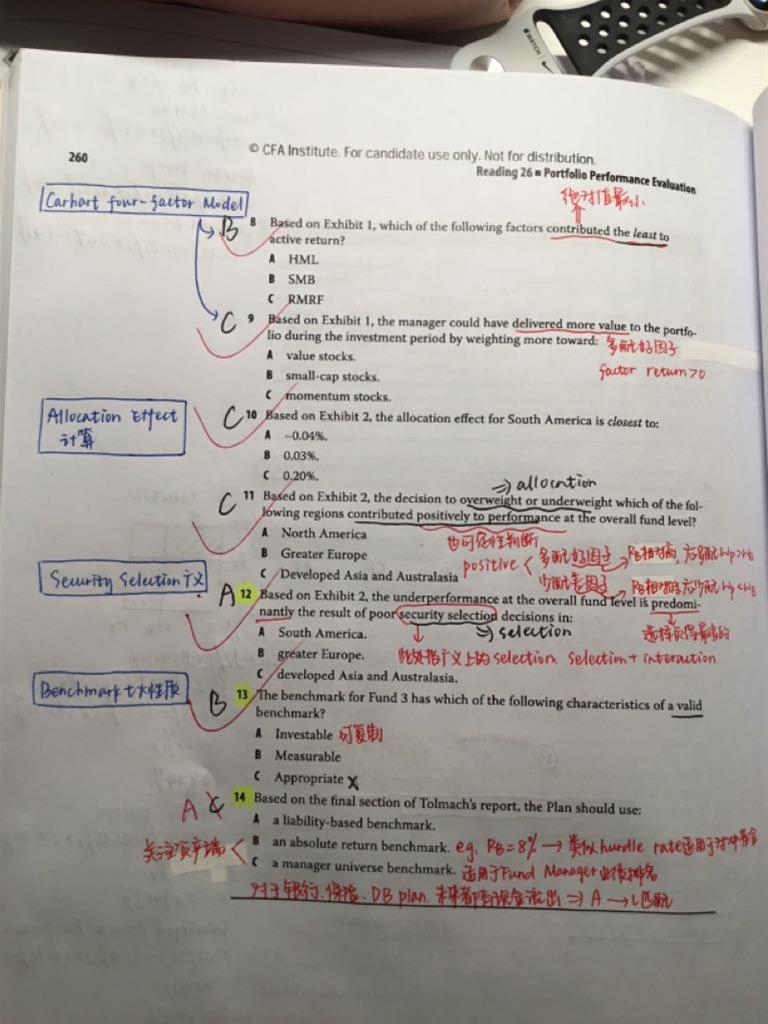 WATCH
260
© CFA Institute. For candidate use only. Not for distribution.
Reading 26 ■ Portfolio Performance Evaluation
Carhart four-factor Model
绝对值最小
B 8 Based on Exhibit 1, which of the following factors contributed the least to
active return?
A HML
B SMB
C RMRF
C 9 Based on Exhibit 1, the manager could have delivered more value to the portfo-
lio during the investment period by weighting more toward: 多配好因子
A value stocks.
factor return>0
B small-cap stocks.
C momentum stocks.
Allocation Effect
计算
C 10 Based on Exhibit 2, the allocation effect for South America is closest to:
A −0.04%.
B 0.03%.
C 0.20%.
⇒ allocation
C 11 Based on Exhibit 2, the decision to overweight or underweight which of the fol-
lowing regions contributed positively to performance at the overall fund level?
A North America
也可定性判断
B Greater Europe
positive < 多配好因子 → RB相对高, 应多配
C Developed Asia and Australasia
少配差因子 → RB相对低, 应少配
Security Selection 广义
A 12 Based on Exhibit 2, the underperformance at the overall fund level is predomi-
nantly the result of poor security selection decisions in:
A South America.
⇒ selection
选择负得最多的
B greater Europe.
此处指广义上的selection. selection + interaction
C developed Asia and Australasia.
Benchmark 七大性质
B 13 The benchmark for Fund 3 has which of the following characteristics of a valid
benchmark?
A Investable 可复制
B Measurable
C Appropriate X
A C 14 Based on the final section of Tolmach's report, the Plan should use:
A a liability-based benchmark.
关注资产端 <
B an absolute return benchmark. eg. RB=8% → 类似hurdle rate适用于对冲基金
C a manager universe benchmark. 适用于Fund Manager业绩排名
对于银行. 保险. DB plan. 未来都有现金流出 ⇒ A → L匹配